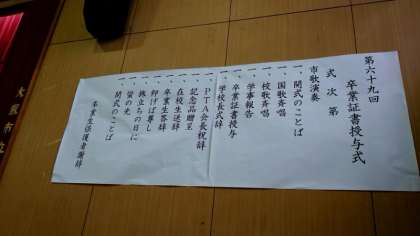 第六十九回
卒業証書授与式
式次第
市歌演奏
一、開式のことば
一、国歌斉唱
一、校歌斉唱
一、学事報告
一、卒業証書授与
一、学校長式辞
一、PTA会長祝辞
一、記念品贈呈
一、在校生送辞
一、卒業生答辞
一、仰げば尊し
一、旅立ちの日に
一、蛍の光
一、閉式のことば
卒業生保護者謝辞
大阪市立